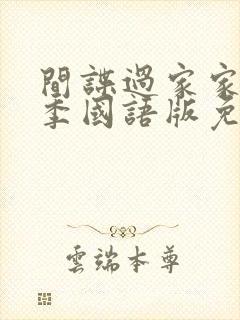 間諜過家家
季國語版免
雲端本尊